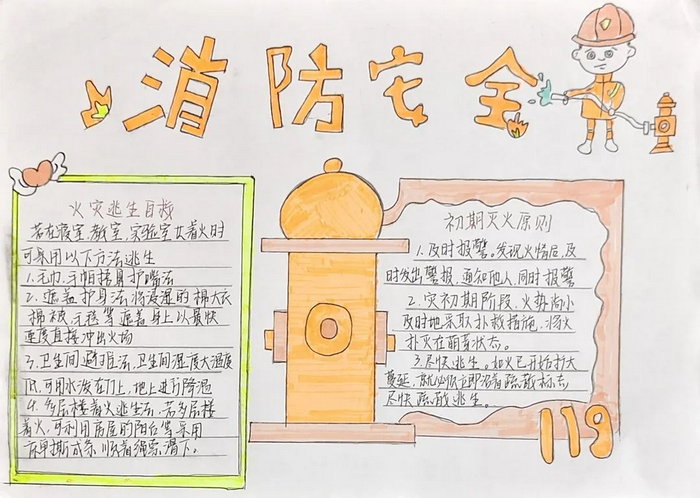 消防安全
火灾逃生自救
若在寝室,教室,实验室女着火时
可采用以下方法逃生
1.毛巾、手帕捂鼻护嘴法
2.遮盖护身法,将浸湿的棉大衣
棉被、毛毯等遮盖身上,以最快
速度直接冲出火场
3.卫生间避难法,卫生间湿度大温度
低,可用水泼在门上,地上进行降温
4.多层楼着火逃生法,若多层楼
着火,可利用房屋的阳台等采用
床单撕成条,顺着绳索滑下。
初期灭火原则
1.及时报警。发现火情后,及
时发出警报,通知他人,同时报警
2.灾初期阶段,火势尚小
及时地采取扑救措施,将火
扑灭在萌芽状态。
3.尽快逃生。如火已开始扩大
蔓延,就必须立即沿着疏散标志,
尽快疏散逃生。
119